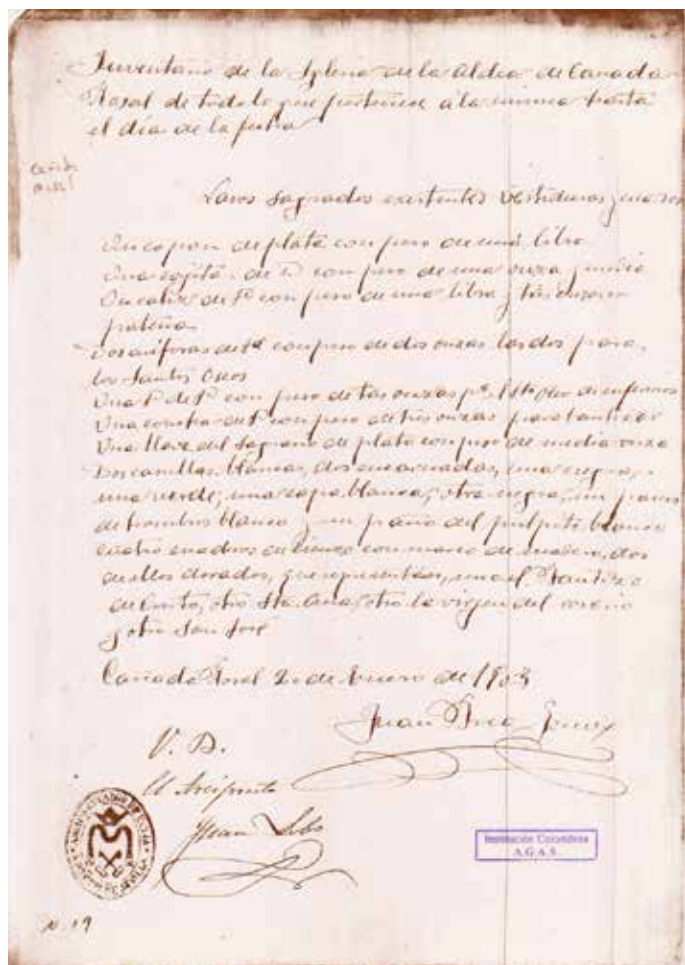 Inventario de la Iglesia de la Aldea de Cañada
Rosal de todo lo que pertenece á la misma hasta
el día de la fecha
Vasos sagrados existentes Vestiduras y
Un copon de plata con peso de una libra
Una cajita de id con peso de una onza y media
Un caliz de id con peso de una libra y tres onzas
patena
Dos anforas de id con peso de dos onzas las dos para
los Santos Oleos
Una id de id con peso de tres onzas pª el Sto Oleo de enfermos
Una concha de id con peso de tres onzas para bautizar
Una llave del Sagrario de plata con peso de media onza
Dos casullas blancas, dos encarnadas, una negra,
una verde, una capa blanca, otra negra, un paño
de hombros blanco y un paño del pulpito blanco
cuatro cuadros de lienzo con marco de madera, dos
de ellos dorados, que representan, uno el Bautizo
de Cristo, otro Sta. Ana, otro la virgen del rosario
y otro San José
Cañada Rosal 2 de Enero de 1903
Juan
V. B.
El Arcipreste
Juan
Institución Colombina
A.G.A.S.
N. 19